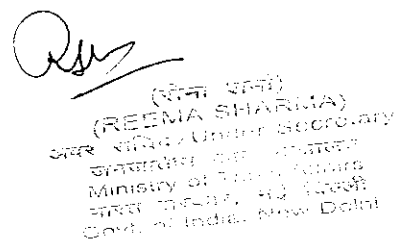 (रीमा शर्मा)
(REEMA SHARMA)
अवर सचिव/Under Secretary
मंत्रालय
Ministry of Affairs
भारत सरकार, नई दिल्ली
Govt. of India, New Delhi